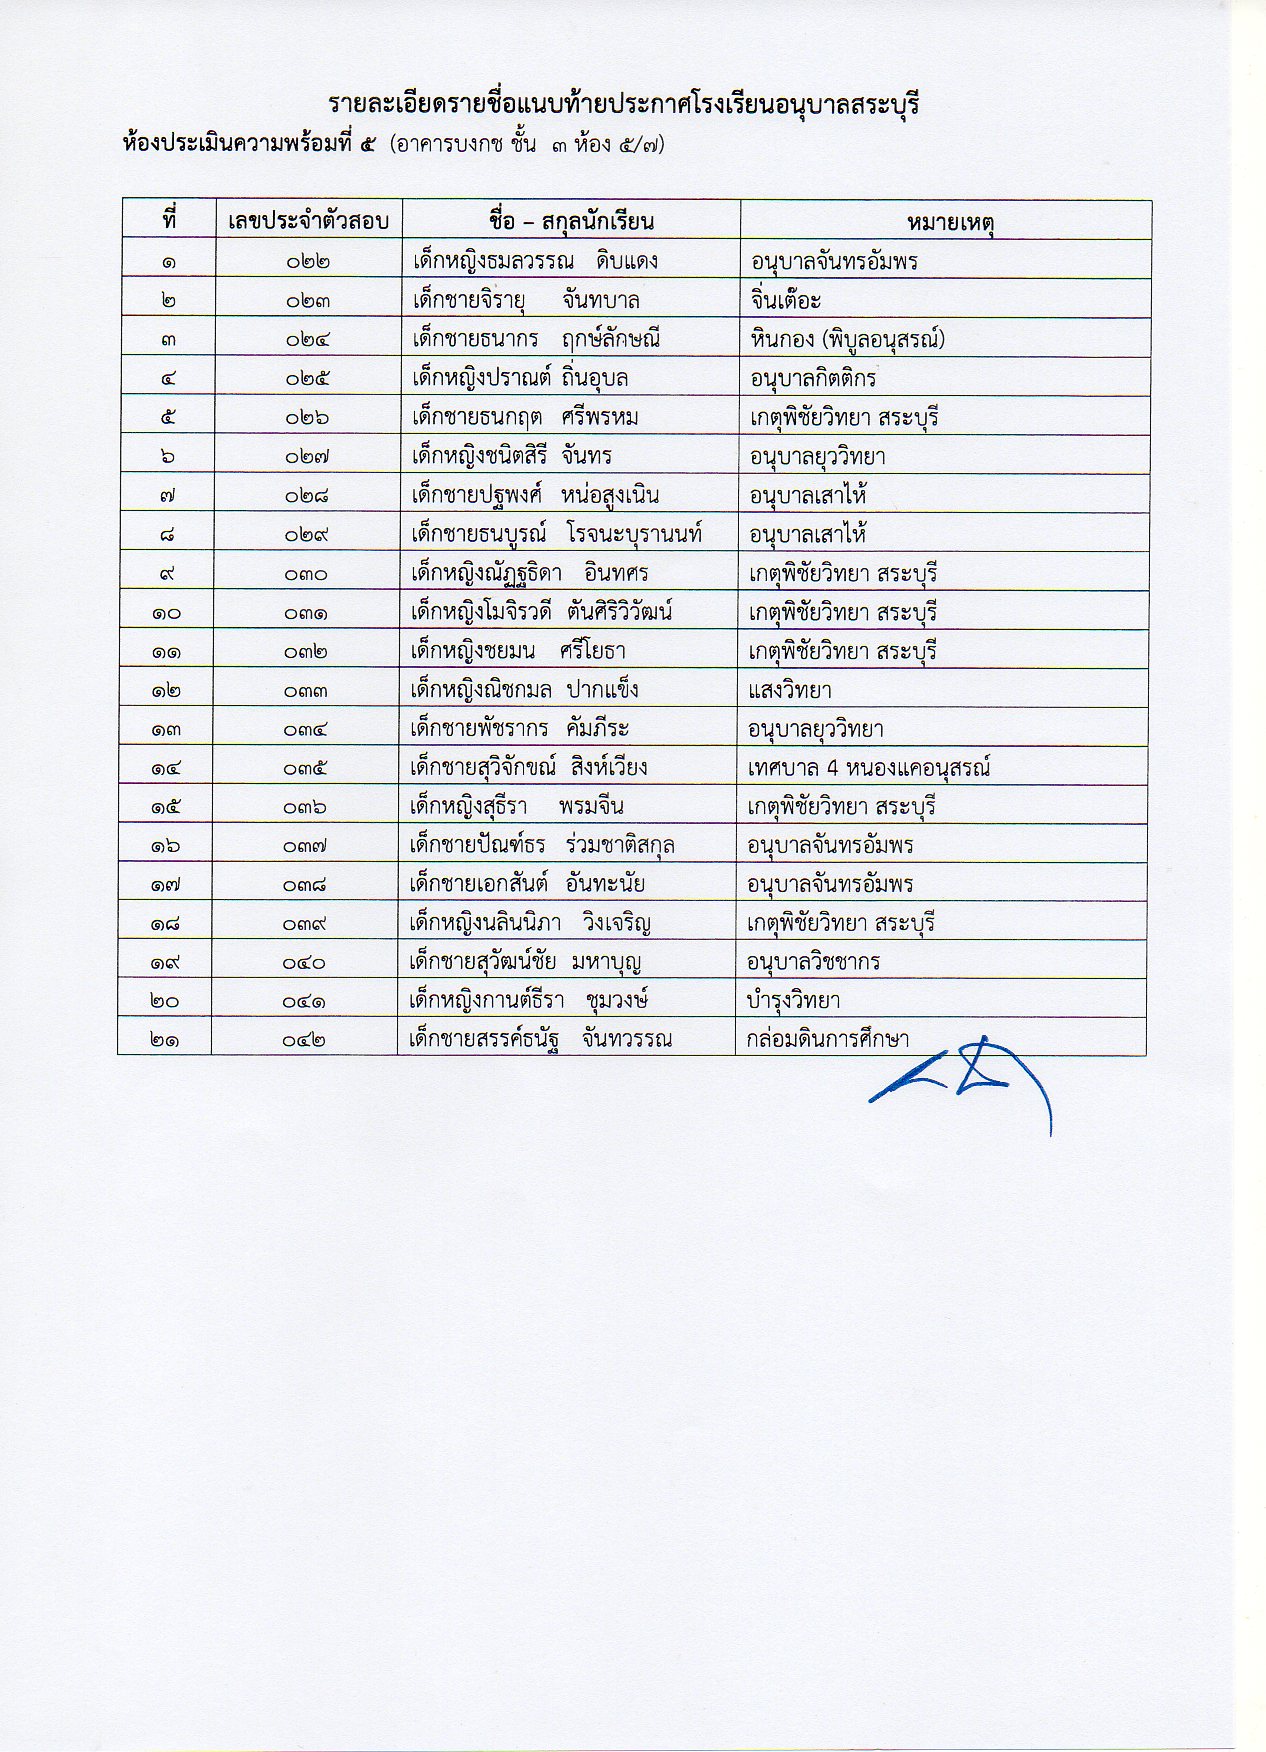 รายละเอียดรายชื่อแนบท้ายประกาศโรงเรียนอนุบาลสระบุรี
ห้องประเมินความพร้อมที่ ๕ (อาคารบงกช ชั้น ๓ ห้อง ๕/๗)
ที่ เลขประจำตัวสอบ ชื่อ – สกุลนักเรียน หมายเหตุ
๑ ๐๒๒ เด็กหญิงธมลวรรณ ดิบแดง อนุบาลจันทรอัมพร
๒ ๐๒๓ เด็กชายจิรายุ จันทบาล จิ่นเต๊อะ
๓ ๐๒๔ เด็กชายธนากร ฤกษ์ลักษณี หินกอง (พิบูลอนุสรณ์)
๔ ๐๒๕ เด็กหญิงปราณต์ ถิ่นอุบล อนุบาลกิตติกร
๕ ๐๒๖ เด็กชายธนกฤต ศรีพรหม เกตุพิชัยวิทยา สระบุรี
๖ ๐๒๗ เด็กหญิงชนิตสิรี จันทร อนุบาลยุววิทยา
๗ ๐๒๘ เด็กชายปฐพงศ์ หน่อสูงเนิน อนุบาลเสาไห้
๘ ๐๒๙ เด็กชายธนบูรณ์ โรจนะบุรานนท์ อนุบาลเสาไห้
๙ ๐๓๐ เด็กหญิงณัฏฐธิดา อินทศร เกตุพิชัยวิทยา สระบุรี
๑๐ ๐๓๑ เด็กหญิงโมจิรวดี ตันศิริวิวัฒน์ เกตุพิชัยวิทยา สระบุรี
๑๑ ๐๓๒ เด็กหญิงชยมน ศรีโยธา เกตุพิชัยวิทยา สระบุรี
๑๒ ๐๓๓ เด็กหญิงณิชกมล ปากแข็ง แสงวิทยา
๑๓ ๐๓๔ เด็กชายพัชรากร คัมภีระ อนุบาลยุววิทยา
๑๔ ๐๓๕ เด็กชายสุวิจักขณ์ สิงห์เวียง เทศบาล 4 หนองแคอนุสรณ์
๑๕ ๐๓๖ เด็กหญิงสุธีรา พรมจีน เกตุพิชัยวิทยา สระบุรี
๑๖ ๐๓๗ เด็กชายปัณฑ์ธร ร่วมชาติสกุล อนุบาลจันทรอัมพร
๑๗ ๐๓๘ เด็กชายเอกสันต์ อันทะนัย อนุบาลจันทรอัมพร
๑๘ ๐๓๙ เด็กหญิงนลินนิภา วิงเจริญ เกตุพิชัยวิทยา สระบุรี
๑๙ ๐๔๐ เด็กชายสุวัฒน์ชัย มหาบุญ อนุบาลวิชชากร
๒๐ ๐๔๑ เด็กหญิงกานต์ธีรา ชุมวงษ์ บำรุงวิทยา
๒๑ ๐๔๒ เด็กชายสรรค์ธนัฐ จันทวรรณ กล่อมดินการศึกษา